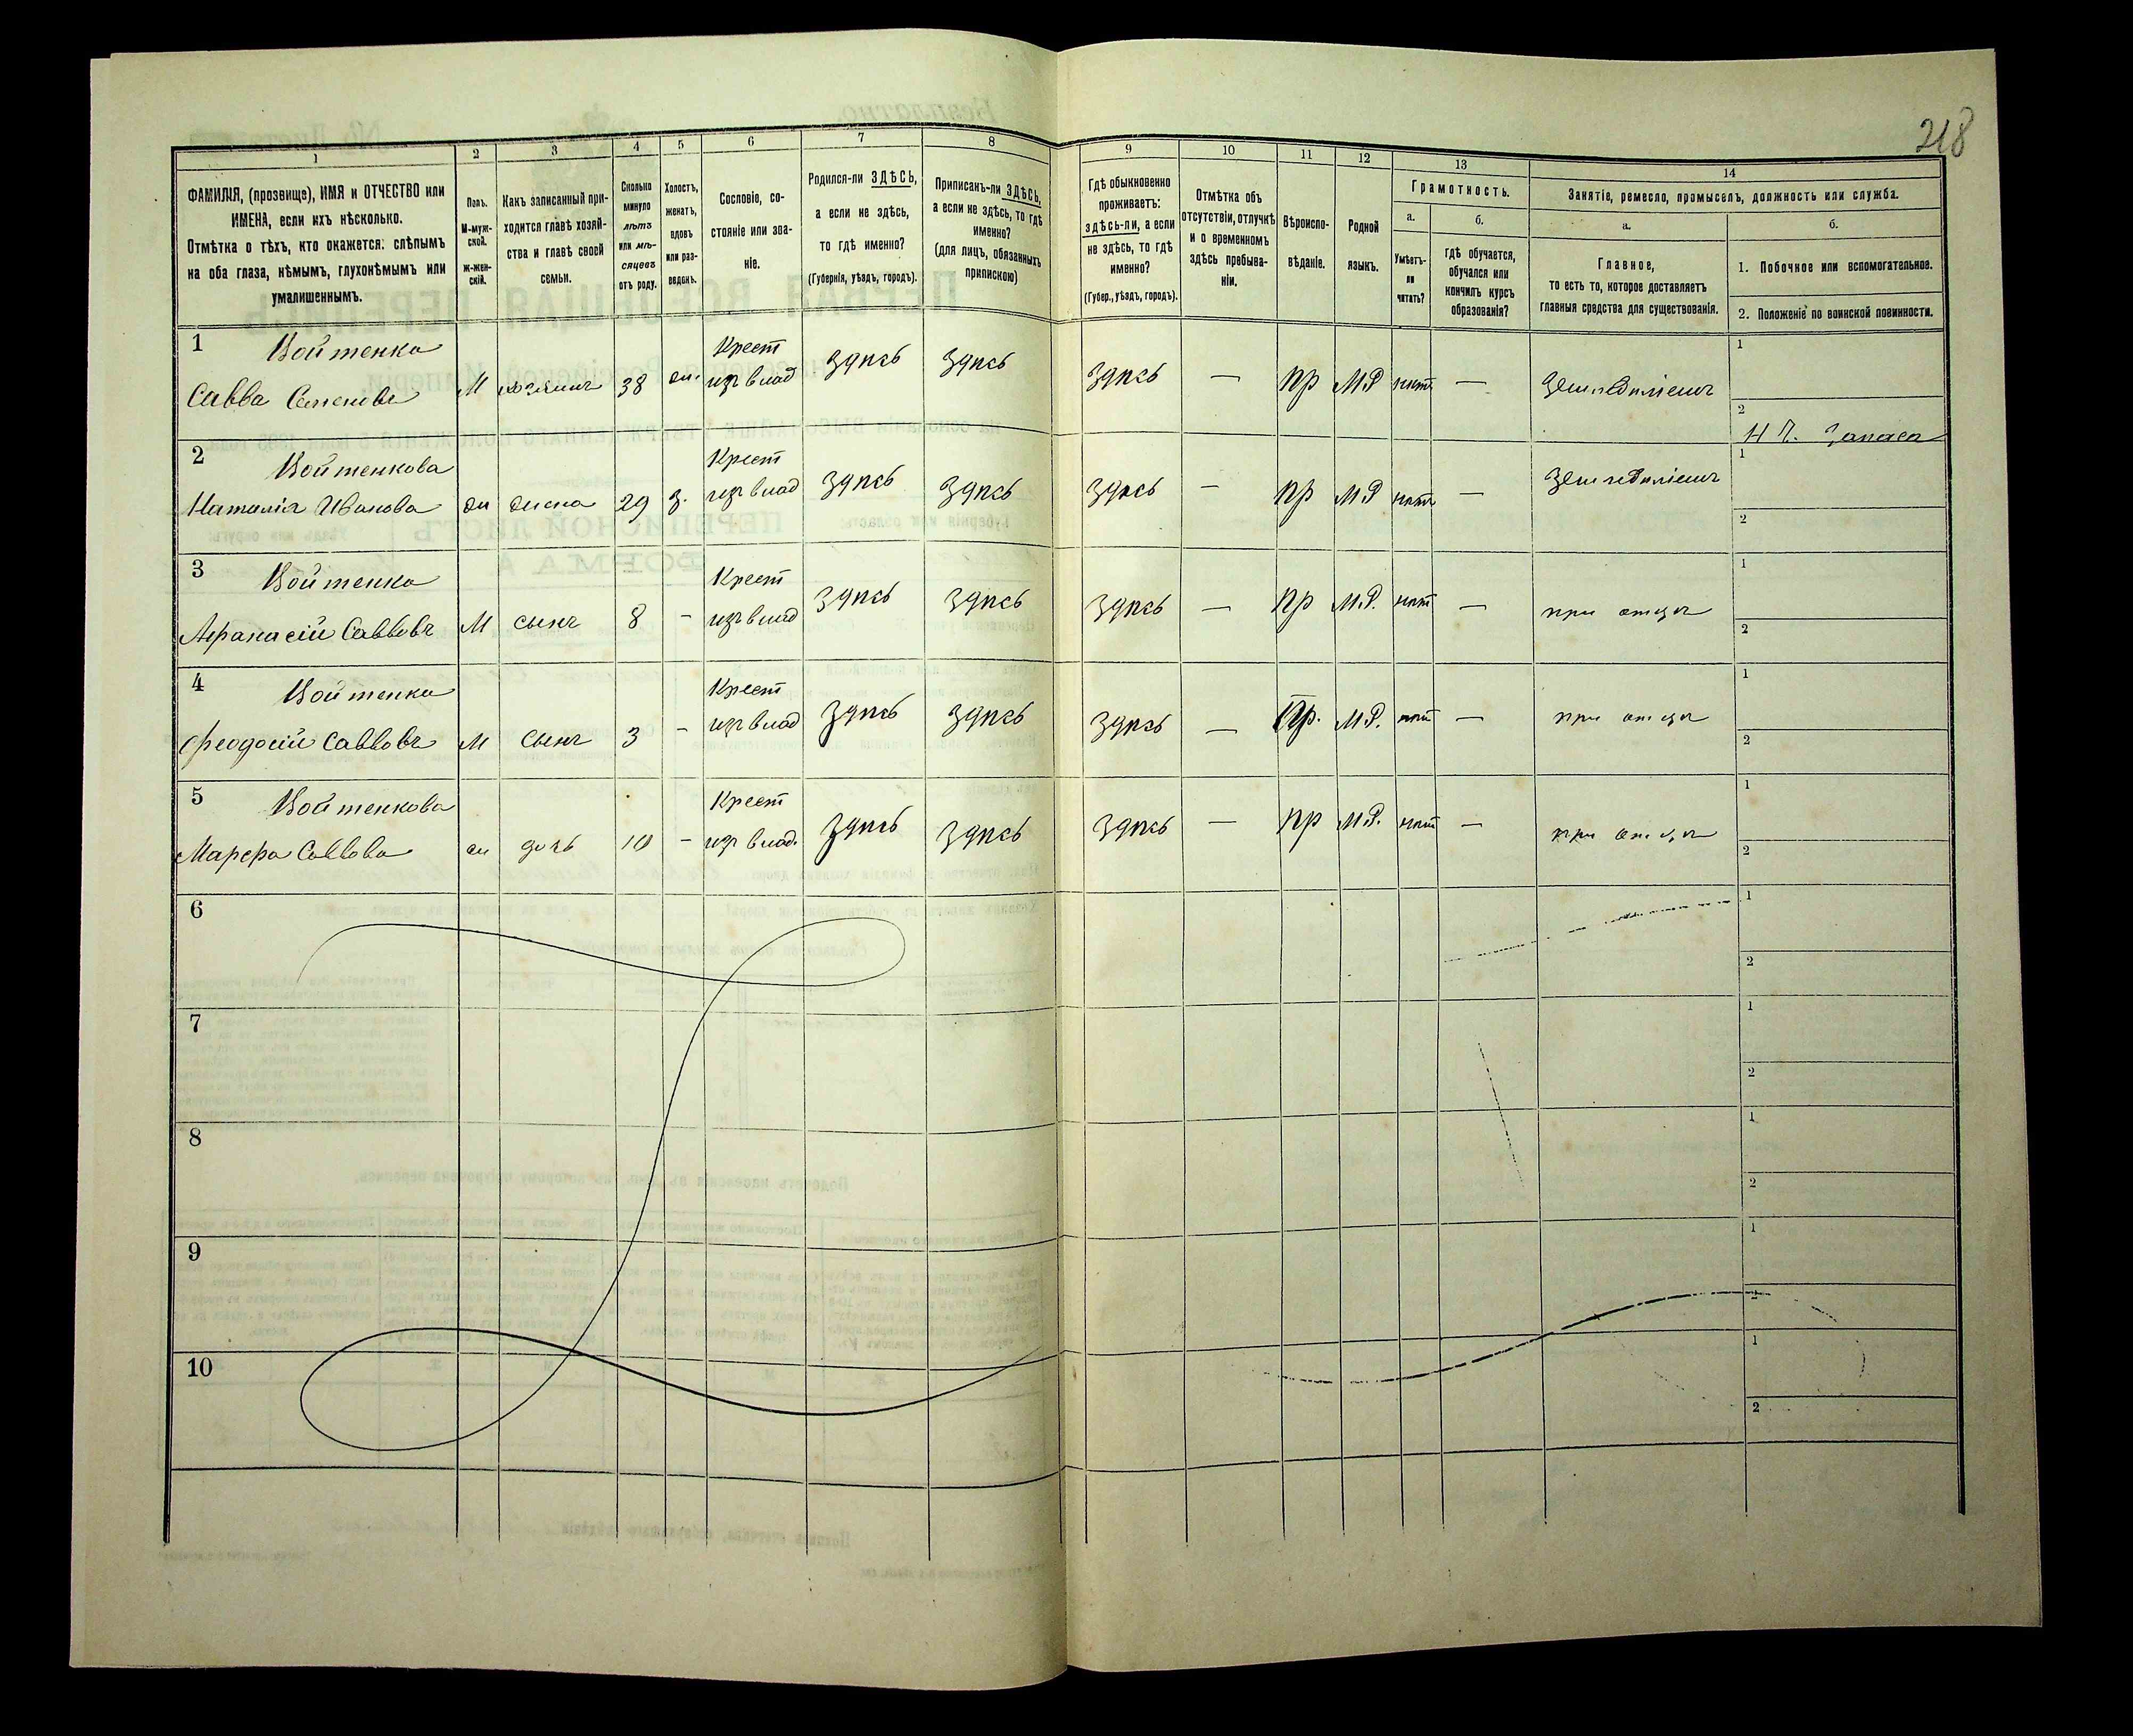 218
1
2
3
4
5
6
7
8
9
10
11
12
13
14
ФАМИЛІЯ, (прозвище), ИМЯ и ОТЧЕСТВО или
ИМЕНА, если ихъ нѣсколько.
Отмѣтка о тѣхъ, кто окажется: слѣпымъ
на оба глаза, нѣмымъ, глухонѣмымъ или
умалишеннымъ.
Полъ.
М-муж-
ской.
ж-жен-
скій.
Какъ записанный при-
ходится главѣ хозяй-
ства и главѣ своей
семьи.
Сколько
минуло
лѣтъ
или мѣ-
сяцевъ
отъ роду.
Холостъ,
женатъ,
вдовъ
или раз-
веденъ.
Сословіе, со-
стояніе или зва-
ніе.
Родился-ли ЗДѢСЬ,
а если не здѣсь,
то гдѣ именно?
(Губернія, уѣздъ, городъ).
Приписанъ-ли ЗДѢСЬ,
а если не здѣсь, то гдѣ
именно?
(для лицъ, обязанныхъ
припискою)
Гдѣ обыкновенно
проживаетъ:
здѣсь-ли, а если
не здѣсь, то гдѣ
именно?
(Губер., уѣздъ, городъ).
Отмѣтка объ
отсутствіи, отлучкѣ
и о временномъ
здѣсь пребыва-
ніи.
Вѣроиспо-
вѣданіе.
Родной
языкъ.
Грамотность.
а.
Умѣетъ-
ли
читать?
б.
гдѣ обучается,
обучался или
кончилъ курсъ
образованія?
Занятіе, ремесло, промыселъ, должность или служба.
а.
Главное,
то есть то, которое доставляетъ
главныя средства для существованія.
б.
1. Побочное или вспомогательное.
2. Положеніе по воинской повинности.
1 Войтенко Крест 1
Савва Семеновъ М хозяинъ 38 жн. изъ влад здѣсь здѣсь здѣсь — пр М.Р нѣтъ — Земледѣліемъ
2 Н Ч. Запаса
2 Войтенкова Крест 1
Наталія Иванова ж жена 29 з. изъ влад здѣсь здѣсь здѣсь — пр М.Р нѣтъ — Земледѣліемъ
2
3 Войтенко Крест 1
Афанасій Саввовъ М сынъ 8 — изъ влад здѣсь здѣсь здѣсь — пр М.Р. нѣт — при отцѣ
2
4 Войтенко Крест 1
Феодосій Саввовъ М сынъ 3 — изъ влад здѣсь здѣсь здѣсь — Пр. М.Р. нѣт — при отцѣ
2
5 Войтенкова Крест 1
Марфа Саввова ж дочь 10 — изъ влад. здѣсь здѣсь здѣсь — пр М.Р. нѣт — при отцѣ
2
6 1
2
7 1
2
8 1
2
9 1
2
10 1
2